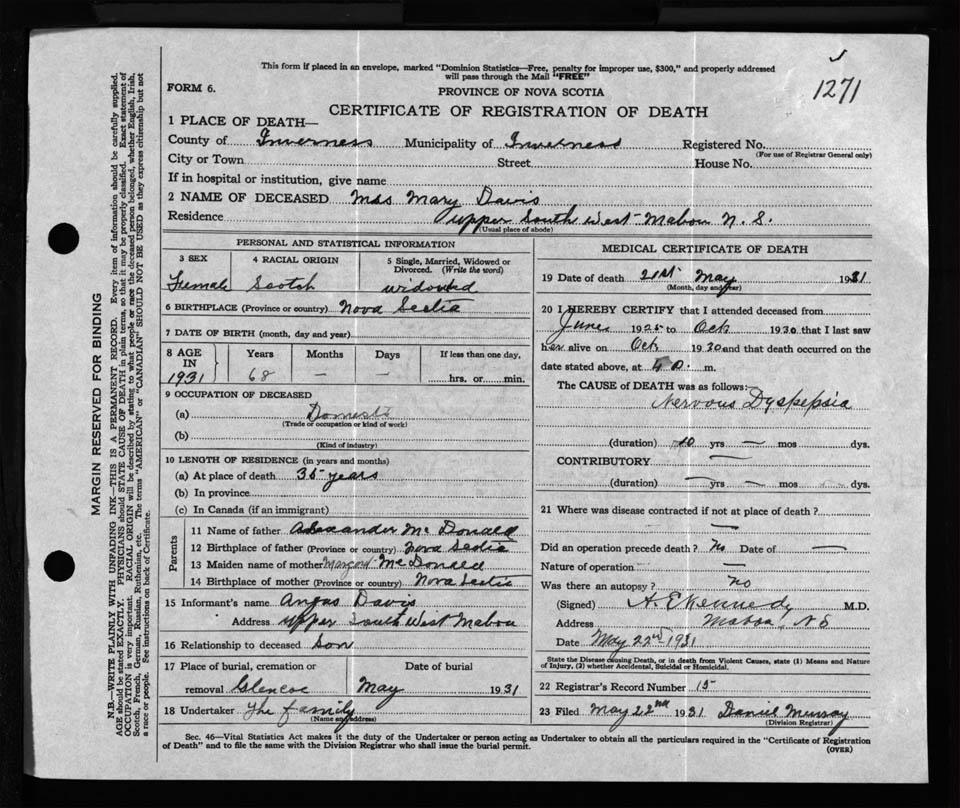 This form if placed in an envelope, marked "Dominion Statistics—Free, penalty for improper use, $300," and properly addressed
will pass through the Mail "FREE"
1271
FORM 6.
PROVINCE OF NOVA SCOTIA
CERTIFICATE OF REGISTRATION OF DEATH
1 PLACE OF DEATH—
County of Inverness Municipality of Inverness Registered No.
(For use of Registrar General only)
City or Town Street House No.
If in hospital or institution, give name
2 NAME OF DECEASED Mrs Mary Davis
Residence Upper South West Mabou N. S.
(Usual place of abode)
PERSONAL AND STATISTICAL INFORMATION
3 SEX 4 RACIAL ORIGIN 5 Single, Married, Widowed or
Divorced. (Write the word)
Female Scotch widowed
6 BIRTHPLACE (Province or country) Nova Scotia
7 DATE OF BIRTH (month, day and year)
8 AGE IN 1931 Years Months Days If less than one day,
68 — — hrs. or min.
9 OCCUPATION OF DECEASED
(a) Domestic
(Trade or occupation or kind of work)
(b)
(Kind of industry)
10 LENGTH OF RESIDENCE (in years and months)
(a) At place of death 35 years
(b) In province
(c) In Canada (if an immigrant)
Parents
11 Name of father Alexander McDonald
12 Birthplace of father (Province or country) Nova Scotia
13 Maiden name of mother McDonald
14 Birthplace of mother (Province or country) Nova Scotia
15 Informant's name Angus Davis
Address Upper South West Mabou
16 Relationship to deceased Son
17 Place of burial, cremation or Date of burial
removal Glencoe May 1931
18 Undertaker The family
(Name and address)
MEDICAL CERTIFICATE OF DEATH
19 Date of death 21st May 1931
(Month, day and year)
20 I HEREBY CERTIFY that I attended deceased from
June 1925 to Oct 1930 that I last saw
her alive on Oct 1930 and that death occurred on the
date stated above, at m.
The CAUSE of DEATH was as follows:
Nervous Dyspepsia
(duration) 10 yrs — mos dys.
CONTRIBUTORY —
(duration) — yrs — mos — dys.
21 Where was disease contracted if not at place of death?
—
Did an operation precede death? No Date of —
Nature of operation —
Was there an autopsy? No
(Signed) A. E Kennedy M.D.
Address Mabou, N S
Date May 22nd 1931
State the Disease causing Death, or in death from Violent Causes, state (1) Means and Nature
of Injury, (2) whether Accidental, Suicidal or Homicidal.
22 Registrar's Record Number 15
23 Filed May 22nd 1931 Daniel Murray
(Division Registrar)
Sec. 46—Vital Statistics Act makes it the duty of the Undertaker or person acting as Undertaker to obtain all the particulars required in the "Certificate of Registration
of Death" and to file the same with the Division Registrar who shall issue the burial permit.
(OVER)
MARGIN RESERVED FOR BINDING
N.B.—WRITE PLAINLY WITH UNFADING INK—THIS IS A PERMANENT RECORD. Every item of information should be carefully supplied.
AGE should be stated EXACTLY. PHYSICIANS should STATE CAUSE OF DEATH in plain terms, so that it may be properly classified. Exact statement of
OCCUPATION is very important. RACIAL ORIGIN will be described by stating to what people or race the deceased person belonged, whether English, Irish,
Scotch, French, German, Russian, Ruthenian, etc. The terms "AMERICAN" or "CANADIAN" SHOULD NOT BE USED as they express citizenship but not
a race or people. See instructions on back of Certificate.